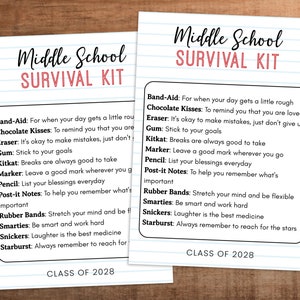 Middle School
SURVIVAL KIT
Band-Aid: For when your day gets a little rough
Chocolate Kisses: To remind you that you are
Eraser: It's okay to make mistakes, just don't give
Gum: Stick to your goals
Kitkat: Breaks are always good to take
Marker: Leave a good mark wherever you go
Pencil: List your blessings everyday
Post-it Notes: To help you remember what's
important
Rubber Bands: Stretch your mind and be
Smarties: Be smart and work hard
Snickers: Laughter is the best medicine
Starburst: Always remember to reach for
CLASS OF 2028
Middle School
SURVIVAL KIT
Band-Aid: For when your day gets a little rough
Chocolate Kisses: To remind you that you are
Eraser: It's okay to make mistakes, just don't give
Gum: Stick to your goals
Kitkat: Breaks are always good to take
Marker: Leave a good mark wherever you go
Pencil: List your blessings everyday
Post-it Notes: To help you remember what's
important
Rubber Bands: Stretch your mind and be flexible
Smarties: Be smart and work hard
Snickers: Laughter is the best medicine
Starburst: Always remember to reach for the stars
CLASS OF 2028